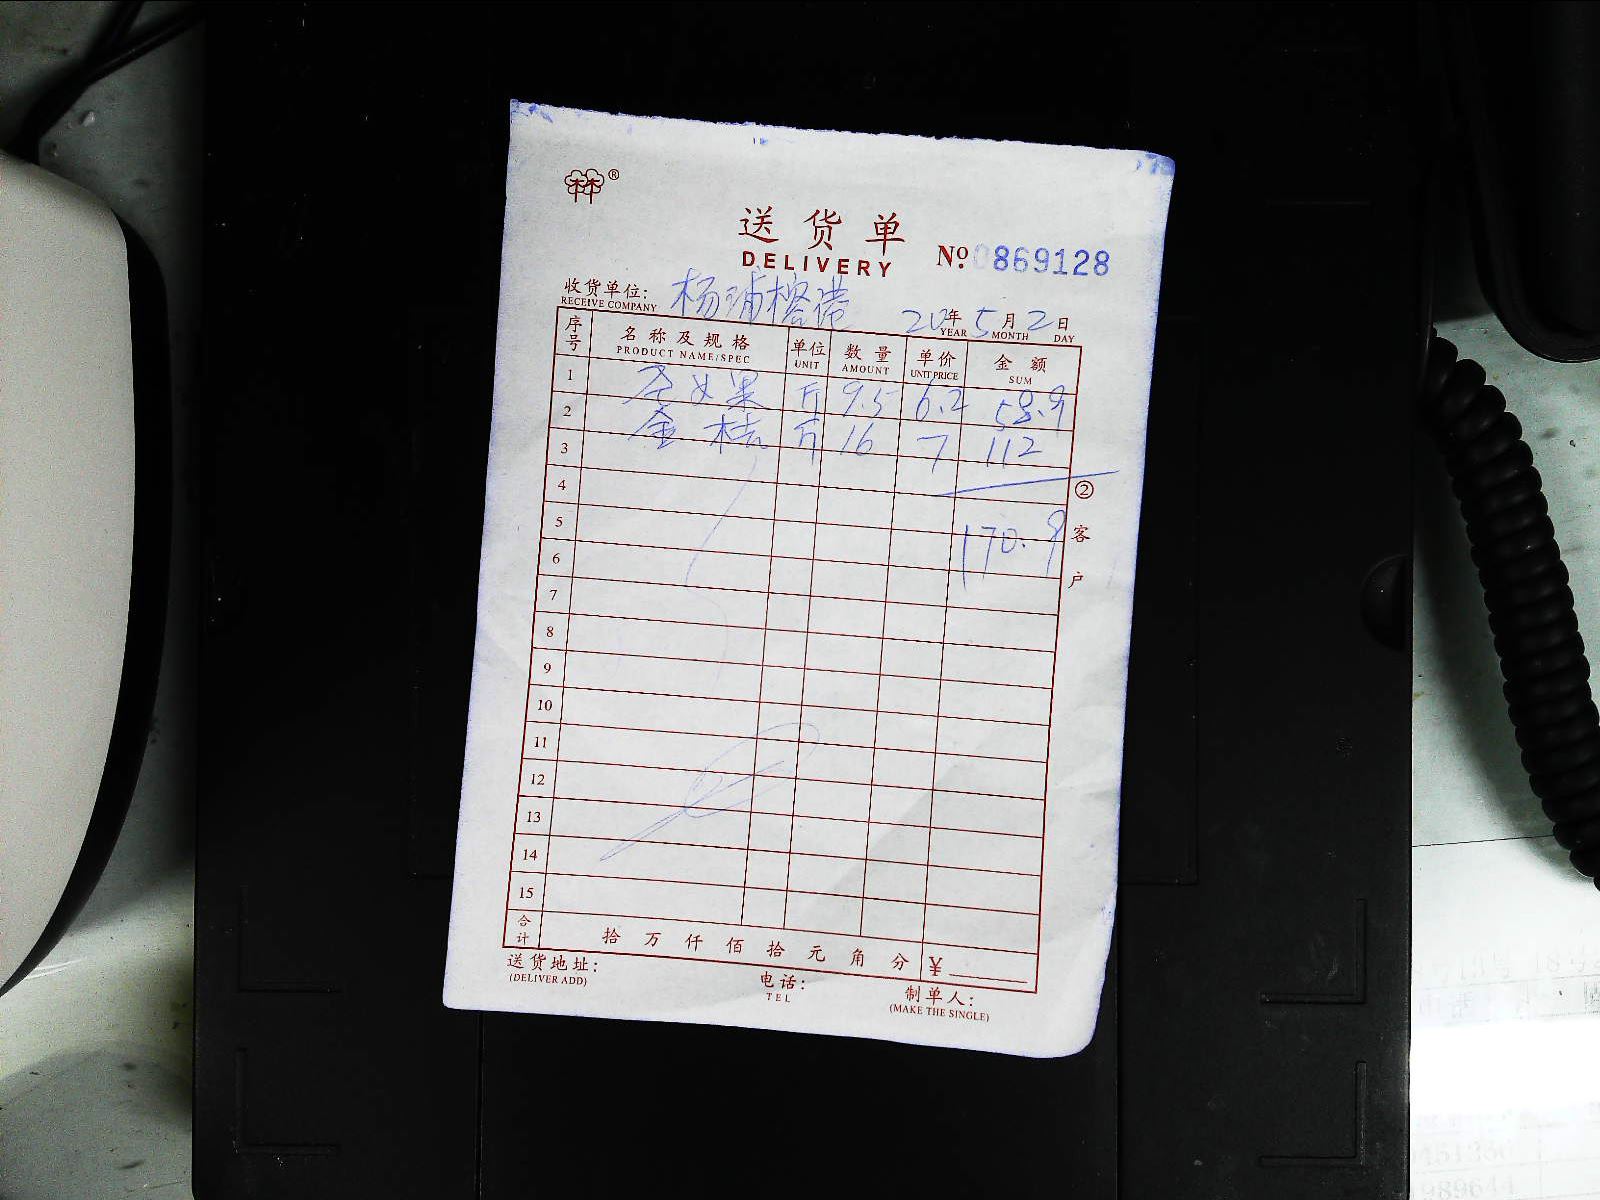 ®
送货单
DELIVERY
No. 0869128
收货单位: 杨浦榕港
RECEIVE COMPANY
20年 5月 2日
YEAR MONTH DAY
序号 名称及规格 单位 数量 单价 金额
PRODUCT NAME/SPEC UNIT AMOUNT UNIT PRICE SUM
1 圣女果 斤 9.5 6.2 58.9
2 金桔 斤 16 7 112
3
4
5 170.9
6
7
8
9
10
11
12
13
14
15
② 客户
合计 拾 万 仟 佰 拾 元 角 分 ¥
送货地址: 电话: 制单人:
(DELIVER ADD) TEL (MAKE THE SINGLE)